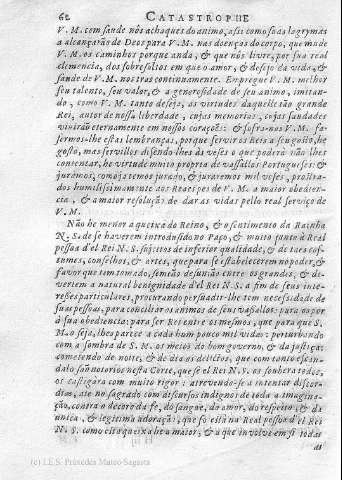 62 CATASTROPHE
V. M. com saude nos achaques do animo, assi como às as lagrymas
a alcançarão de Deos para V. M. nas doenças do corpo, que mude
V. M. os caminhos porque anda, & que nos livre, por sua real
clemencia, dos sobresaltos em que o amor, & desejo da vida, &
saude de V. M. nos tras continuamente. Empregue V. M. melhor
seu talento, seu valor, & a generosidade de seu animo, imitan-
do, como V. M. tanto deseja, as virtudes daquelle tão grande
Rei, autor de nossa liberdade, cujas memorias, cujas saudades
vivirão eternamente em nossos coraçoẽs: & sofra-nos V. M. fa-
sermos-lhe estas lembranças, porque servir os Reis a seu gosto, he
gosto, mas servillos disendo-lhes às veses o que poderà não lhes
contentar, he virtude muito propria de vassallos Portugueses: &
juràmos, como ja temos jurado, & juraremos mil veses, prostra-
dos humilissimamente aos Reaes pes de V. M. a maior obedien-
cia, & a maior resolução de dar as vidas pello real serviço de
V. M.
Não he menor a queixa do Reino, & o sentimento da Rainha
N. S. de se haverem introdusido no Paço, & muito junto à Real
pessoa d'el Rei N. S. sujeitos de inferior qualidade, & de taes cos-
tumes, conselhos, & artes, que para se establecerem no poder, &
favor que tem tomado, semeão desunião entre os grandes, & di-
vertem a natural benignidade d'el Rei N. S. a fim de seus inte-
resses particulares, procurando persuadir-lhe tem necessidade de
suas pessoas, para conciliar os animos de seus vassallos: para os por
à sua obediencia: para ser Rei entre os mesmos, que para que S.
M. o seja, lhes parece a cada hum pouco mil vidas: perturbando
com a sombra de S. M. os meios do bom governo, & da justiça:
cometendo de noite, & de dia os delictos, que com tanto escan-
dalo são notorios nesta Corte, que se el Rei N. S. os soubera todos,
os castigàra com muito rigor: atrevendo-se a intentar discor-
dias, atè no sagrado com discursos indignos de toda a imagina-
ção, contra o decoro da fè, do sangue, do amor, do respeito, & da
unica, & legitima adoração, que só està na Real pessoa d'el Rei
N. S. como esta queixa he a maior, & a que involve em si todas
as
(c) I.E.S. Práxedes Mateo Sagasta